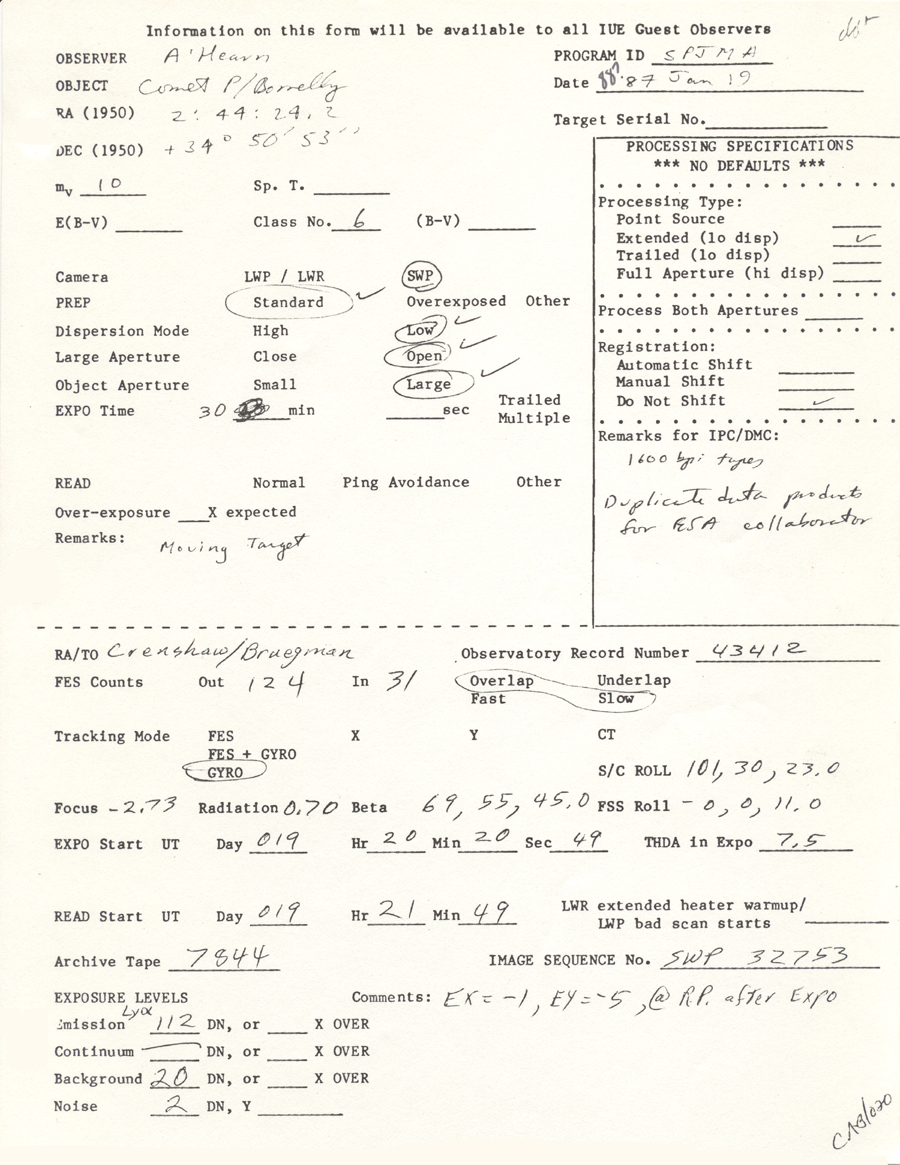 Information on this form will be available to all IUE Guest Observers
OBSERVER A'Hearn
PROGRAM ID SPJMA
OBJECT Comet P/Borrelly
Date 87 Jan 19
RA (1950) 2: 44: 24.2
Target Serial No.
DEC (1950) +34° 50' 53''
PROCESSING SPECIFICATIONS
*** NO DEFAULTS ***
mv 10 Sp. T.
E(B-V) Class No. 6 (B-V)
Processing Type:
Point Source
Extended (lo disp) ✓
Trailed (lo disp)
Full Aperture (hi disp)
Process Both Apertures
Registration:
Automatic Shift
Manual Shift
Do Not Shift ✓
Remarks for IPC/DMC:
1600 bpi tapes
Duplicate data products
for ESA collaborator
Camera LWP / LWR SWP
PREP Standard ✓ Overexposed Other
Dispersion Mode High Low ✓
Large Aperture Close Open ✓
Object Aperture Small Large ✓
EXPO Time 30 min sec Trailed
Multiple
READ Normal Ping Avoidance Other
Over-exposure X expected
Remarks: Moving Target
RA/TO Crenshaw/Bruegman Observatory Record Number 43412
FES Counts Out 124 In 31 Overlap Underlap
Fast Slow
Tracking Mode FES X Y CT
FES + GYRO
GYRO
S/C ROLL 101, 30, 23.0
Focus -2.73 Radiation 0.70 Beta 69, 55, 45.0 FSS Roll -0, 0, 11.0
EXPO Start UT Day 019 Hr 20 Min 20 Sec 49 THDA in Expo 7.5
READ Start UT Day 019 Hr 21 Min 49 LWR extended heater warmup/
LWP bad scan starts
Archive Tape 7844 IMAGE SEQUENCE No. SWP 32753
EXPOSURE LEVELS Comments: EX = -1, EY = -5, @ R.P. after Expo
Emission Lyα 112 DN, or X OVER
Continuum — DN, or X OVER
Background 20 DN, or X OVER
Noise 2 DN, Y